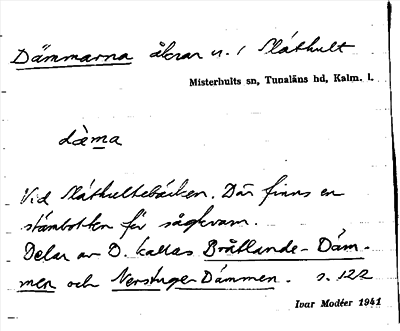 Dämmarna åkrar n. / Slåthult
Misterhults sn, Tunaläns hd, Kalm. l.
dä̀ma
Vid Slåthultebäcken. Där finns en
stämbotten för sågkvarn.
Delar av D. kallas Bråtlande-Däm-
men och Nerstuge Dämmen. s. 122
Ivar Modéer 1941